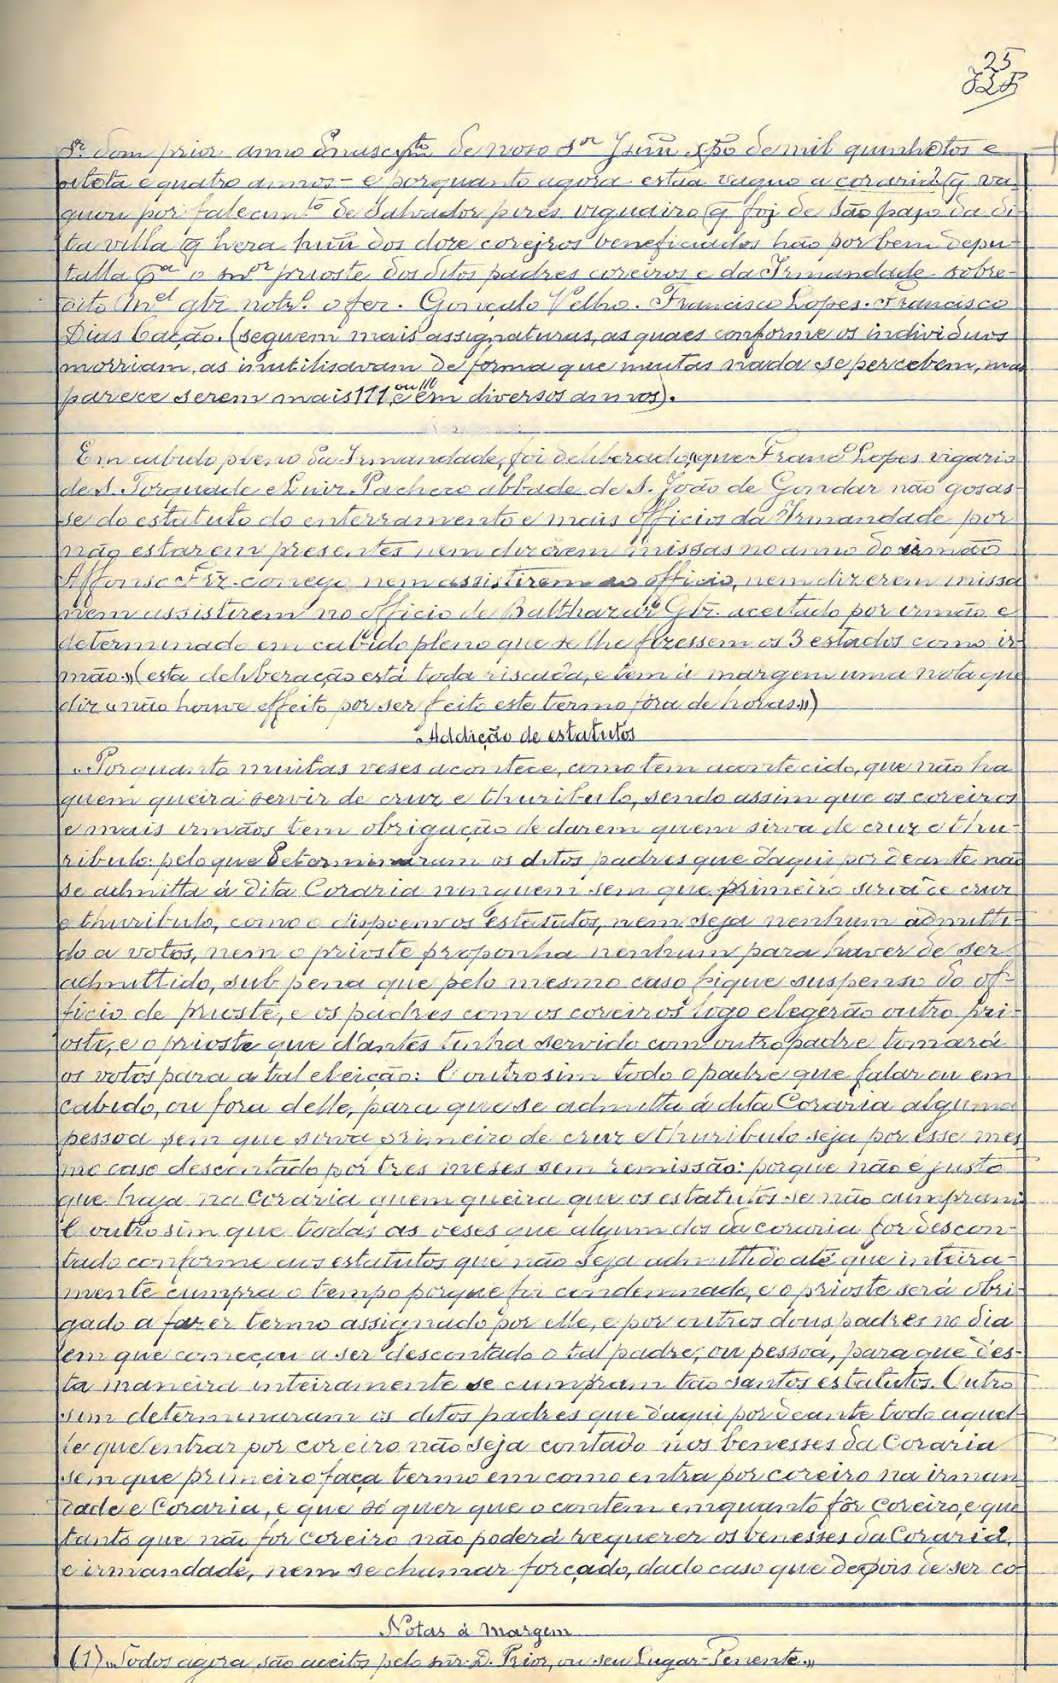 25
Sr. dom prior anno do nascymto de noso Sor Jhũ xpõ de mil quinhẽtos e
oitẽta e quatro annos – e porquanto agora estaa vaguo a coraria q̃ va-
guou por falecimto de Salvador pires vigairo q̃ foj de São pajo da di-
ta villa q̃ hera huũ dos doze corejros beneficiados hão por bem depu-
talla pa o mor prioste dos ditos padres coreiros e da Irmandade sobre-
dito Mel glz notro o fez. Gonçalo Velho. Francisco Lopes. Francisco
Dias Cação. (seguem mais assignaturas, as quaes conforme os individuos
morriam, as inutilisavam de forma que muitas nada se percebem, mas
parece serem mais 111 ou 110 e em diversos annos).
Em cabido pleno da Irmandade, foi deliberado, "que Franco Lopes vigario
de S. Torquade e Luiz Pacheco abbade de S. João de Gondar não gosas-
se do estatuto do enterramento e mais officios da Irmandade por
não estarem presentes nem dizerem missas no anno do irmão
Affonso Frz. conego, nem assistirem ao officio, nem dizerem missa
nem assistirem no officio de Balthazar Glz. aceitado por irmão e
determinado em cabido pleno que se lhe fizessem os 3 estados como ir-
mão." (esta deliberação está toda riscada, e tem á margem uma nota que
diz "não houve effeito por ser feito este termo fóra de horas.")
"Addição de estatutos
"Porquanto muitas veses acontece, como tem acontecido, que não ha
quem queira servir de cruz e thuribulo, sendo assim que os coreiros
e mais irmãos tem obrigação de darem quem sirva de cruz e thu-
ribulo: pelo que determinaram os ditos padres que d'aqui por deante não
se admitta á dita Coraria ninguem sem que primeiro sirva de cruz
e thuribulo, como o dispoem os estatutos, nem seja nenhum admitti-
do a votos, nem o prioste proponha nenhum para haver de ser
admittido, sub pena que pelo mesmo caso fique suspenso do of-
ficio de prioste, e os padres com os coreiros logo elegerão outro pri-
oste, e o prioste que d'antes tinha servido com outro padre tomará
os votos para a tal eleição: E outrosim todo o padre que falar ou em
cabido, ou fora delle, para que se admitta á dita Coraria alguma
pessoa sem que sirva primeiro de cruz e thuribulo seja por esse mes
mo caso descontado por tres meses sem remissão: porque não é justo
que haja na Coraria quem queira que os estatutos se não cumpram:
E outro sim que todas as veses que algum dos da coraria for descon-
tado conforme aos estatutos que não seja admittido até que inteira-
mente cumpra o tempo porque foi condemnado, e o prioste será obri-
gado a fazer termo assignado por elle, e por outros dous padres no dia
em que começou a ser descontado o tal padre, ou pessoa, para que d'es-
ta maneira inteiramente se cumpram tão santos estatutos. Outro
sim determinaram os ditos padres que d'aqui por deante todo aquel-
le que entrar por coreiro não seja contado nos benesses da Coraria
sem que primeiro faça termo em como entra por coreiro na irman
dade e Coraria, e que só quer que o contem emquanto fôr coreiro, e que
tanto que não fôr coreiro não poderá requerer os benesses da Coraria
e irmandade, nem se chamar forçado, dado caso que depois de ser co-
Notas á margem
(1) "Todos agora são aceitos pelo snr. D. Prior, ou seu Lugar-Tenente."